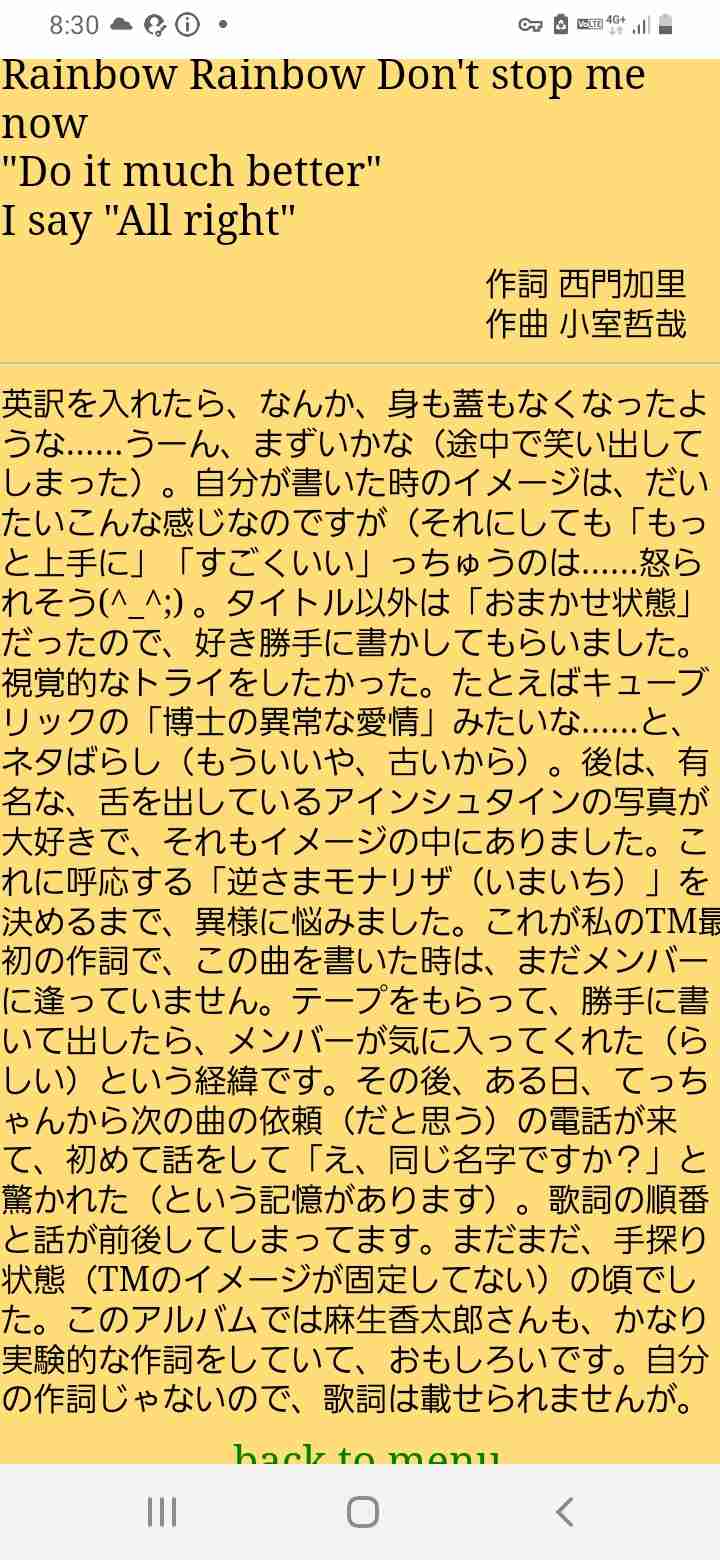 8:30
VoLTE 4G+
Rainbow Rainbow Don't stop me
now
"Do it much better"
I say "All right"
作詞 西門加里
作曲 小室哲哉
英訳を入れたら、なんか、身も蓋もなくなったよ
うな……うーん、まずいかな（途中で笑い出して
しまった）。自分が書いた時のイメージは、だい
たいこんな感じなのですが（それにしても「もっ
と上手に」「すごくいい」っちゅうのは……怒ら
れそう(^_^;) 。タイトル以外は「おまかせ状態」
だったので、好き勝手に書かしてもらいました。
視覚的なトライをしたかった。たとえばキューブ
リックの「博士の異常な愛情」みたいな……と、
ネタばらし（もういいや、古いから）。後は、有
名な、舌を出しているアインシュタインの写真が
大好きで、それもイメージの中にありました。こ
れに呼応する「逆さまモナリザ（いまいち）」を
決めるまで、異様に悩みました。これが私のTM最
初の作詞で、この曲を書いた時は、まだメンバー
に逢っていません。テープをもらって、勝手に書
いて出したら、メンバーが気に入ってくれた（ら
しい）という経緯です。その後、ある日、てっち
ゃんから次の曲の依頼（だと思う）の電話が来
て、初めて話をして「え、同じ名字ですか？」と
驚かれた（という記憶があります）。歌詞の順番
と話が前後してしまってます。まだまだ、手探り
状態（TMのイメージが固定してない）の頃でし
た。このアルバムでは麻生香太郎さんも、かなり
実験的な作詞をしていて、おもしろいです。自分
の作詞じゃないので、歌詞は載せられませんが。
back to menu